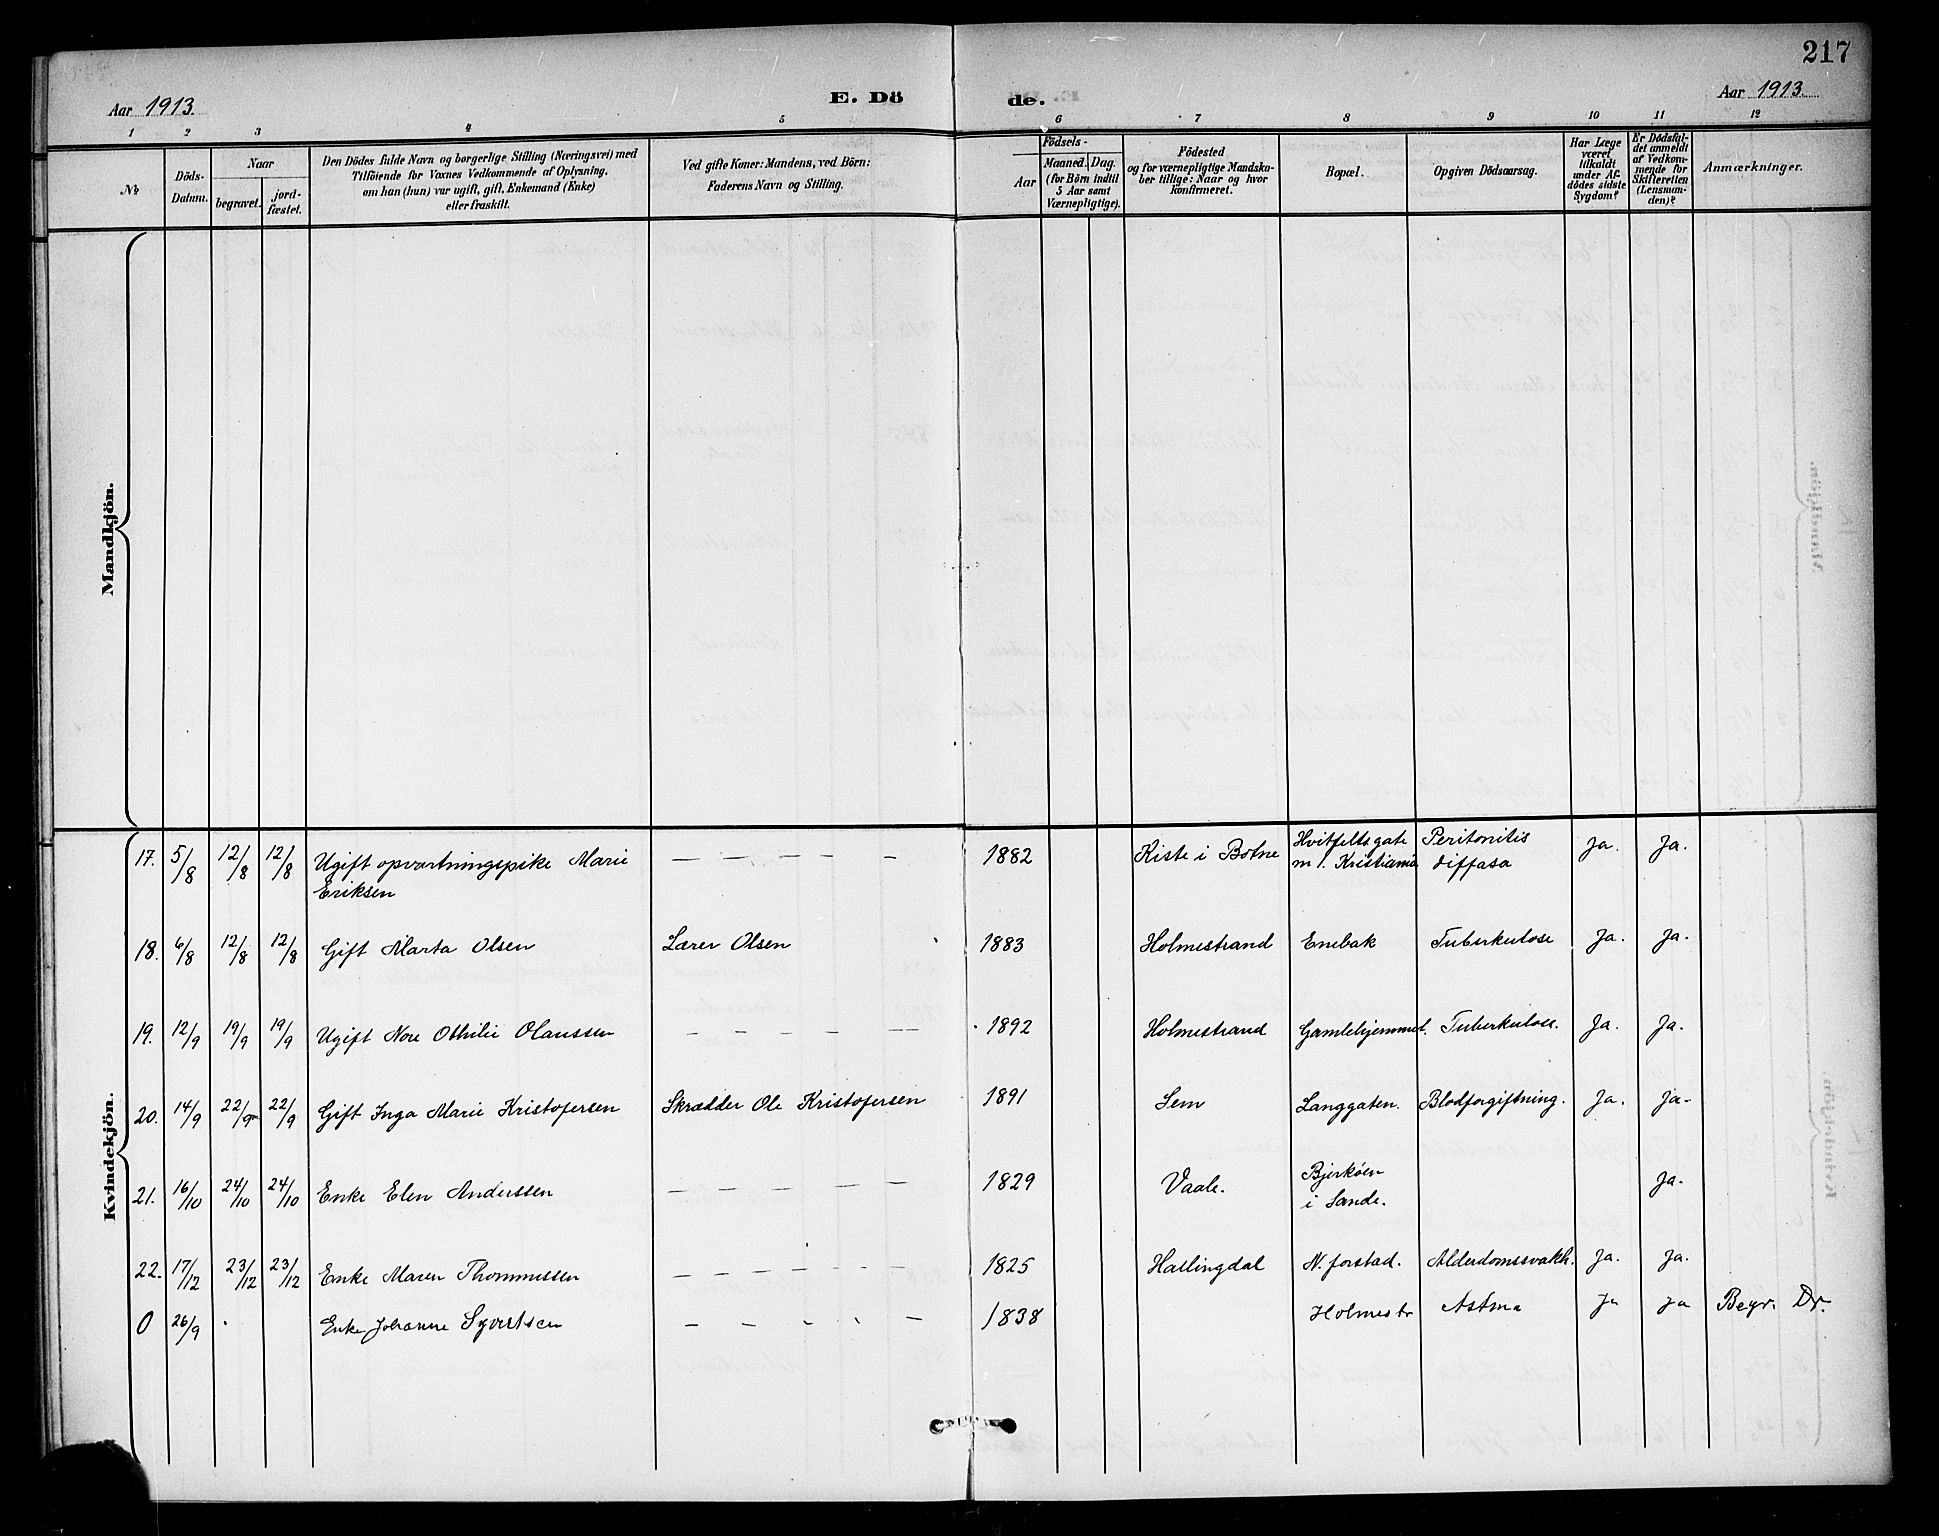 217
Aar 1913.
E. Dö
de.
Aar 1913.
1 2 3 4 5 6 7 8 9 10 11 12
No
Döds-
Datum.
Naar
begravet.
jord-
fæstet.
Den Dödes fulde Navn og borgerlige Stilling (Næringsvei) med
Tilföiende for Voxnes Vedkommende af Oplysning,
om han (hun) var ugift, gift, Enkemand (Enke)
eller fraskilt.
Ved gifte Koner: Mandens, ved Börn:
Faderens Navn og Stilling.
Födsels-
Aar
Maaned. Dag.
(for Börn indtil
5 Aar samt
Værnepligtige).
Födested
og for værnepligtige Mandska-
ber tillige: Naar og hvor
konfirmeret.
Bopæl.
Opgiven Dödsaarsag.
Har Læge
været
tilkaldt
under Af-
dödes sidste
Sygdom?
Er Dödsfal-
det anmeldt
af Vedkom-
mende for
Skifteretten
(Lensman-
den)?
Anmærkninger.
Mandkjön.
Kvindekjön.
17. 5/8 12/8 12/8 Ugift opvartningspike Marie — — — — — 1882 Kiste i Botne Hvitfeltsgate Peritonitis Ja. Ja.
Eriksen m 1. Kristiania diffasa
18. 6/8 12/8 12/8 Gift Marta Olsen Lærer Olsen 1883 Holmestrand Enebak Tuberkulose Ja. Ja.
19. 12/9 19/9 19/9 Ugift Nore Othilie Olaussen — — — — — 1892 Holmestrand Gamlehjemmet. Tuberkulose. Ja. Ja.
20. 14/9 22/9 22/9 Gift Inga Marie Kristofersen Skrædder Ole Kristofersen 1891 Sem Langgaten. Blodforgiftning. Ja. Ja-
21. 16/10 24/10 24/10 Enke Elen Anderssen — — — — — 1829 Vaale. Bjerköen Ja.
i Sande.
22. 17/12 23/12 23/12 Enke Maren Thommessen — — — — — 1825 Hallingdal N. forstad. Alderdomssvakh. Ja. Ja.
0 26/9 Enke Johanne Syvertsen — — — — 1838 Holmestr Astma Ja Ja Begr. Dr.